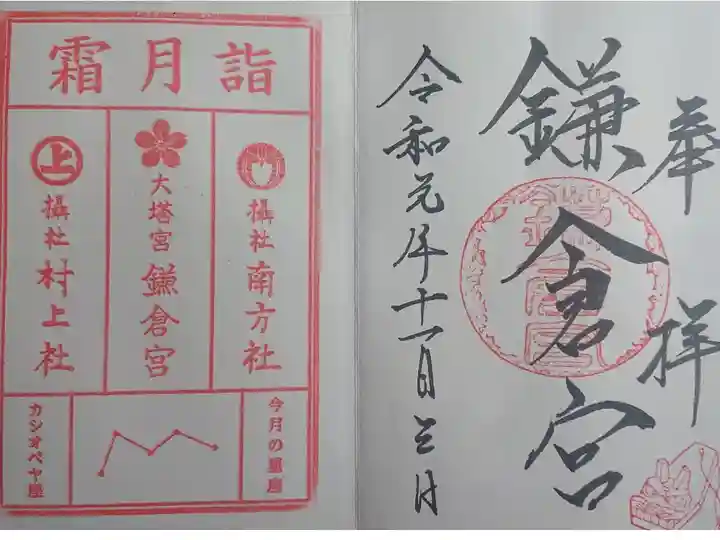 奉拝
鎌倉宮
鎌倉宮
令和元年十一月三日
霜月詣
摂社南方社
大塔宮鎌倉宮
上
攝社村上社
今月の星座
カシオペヤ座